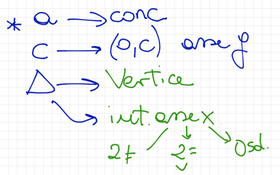 * a → conc
c → (0,c) asse y
Δ → Vertice
→ int. asse x
2≠ 2= 0sol.